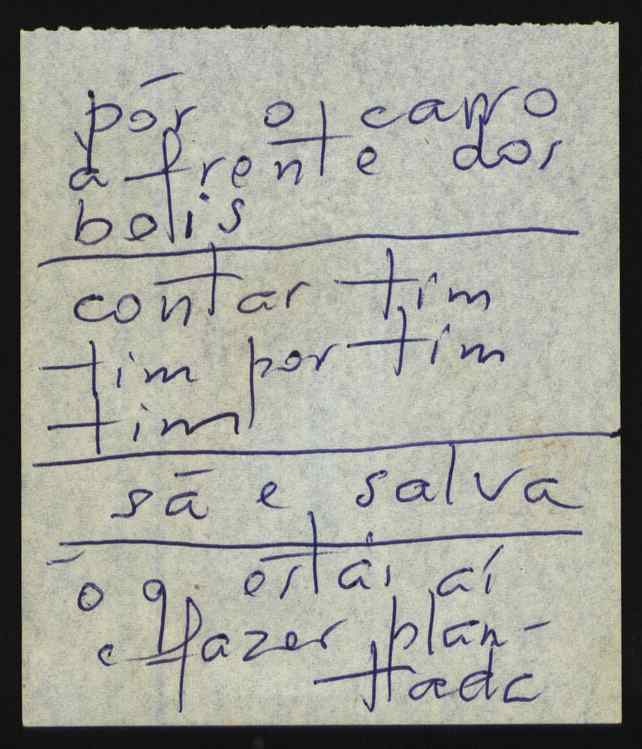 pôr o carro
à frente dos
bois
contar tim
tim por tim
tim
sã e salva
ó q. estás aí
a fazer plan-
tada